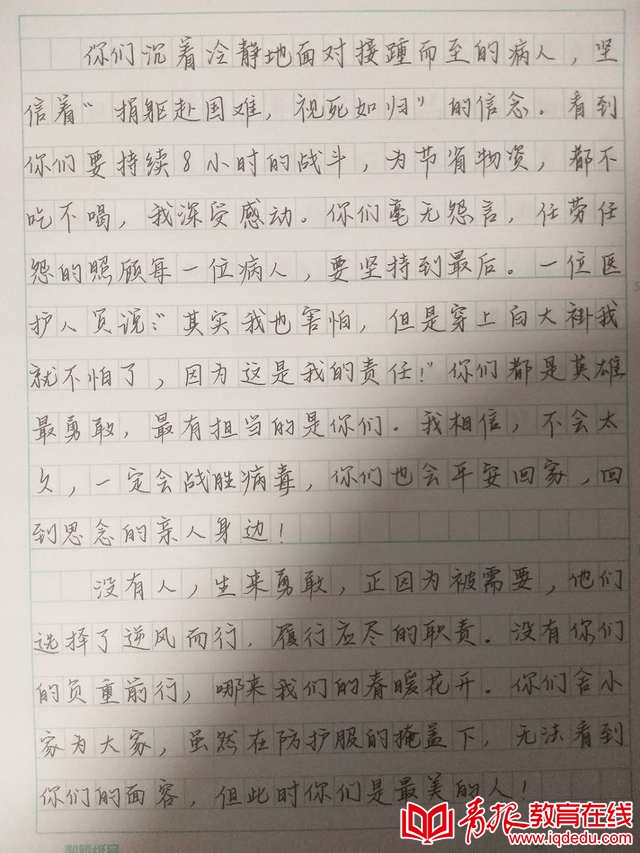 你们沉着冷静地面对接踵而至的病人，坚
信着“捐躯赴国难，视死如归”的信念。看到
你们要持续8小时的战斗，为节省物资，都不
吃不喝，我深受感动。你们毫无怨言，任劳任
怨的照顾每一位病人，要坚持到最后。一位医
护人员说：“其实我也害怕，但是穿上白大褂我
就不怕了，因为这是我的责任！”你们都是英雄
最勇敢，最有担当的是你们。我相信，不会太
久，一定会战胜病毒，你们也会平安回家，回
到思念的亲人身边！
没有人，生来勇敢，正因为被需要，他们
选择了逆风而行，履行应尽的职责。没有你们
的负重前行，哪来我们的春暖花开。你们舍小
家为大家，虽然在防护服的掩盖下，无法看到
你们的面容，但此时你们是最美的人！
青报教育在线
www.iqdedu.com